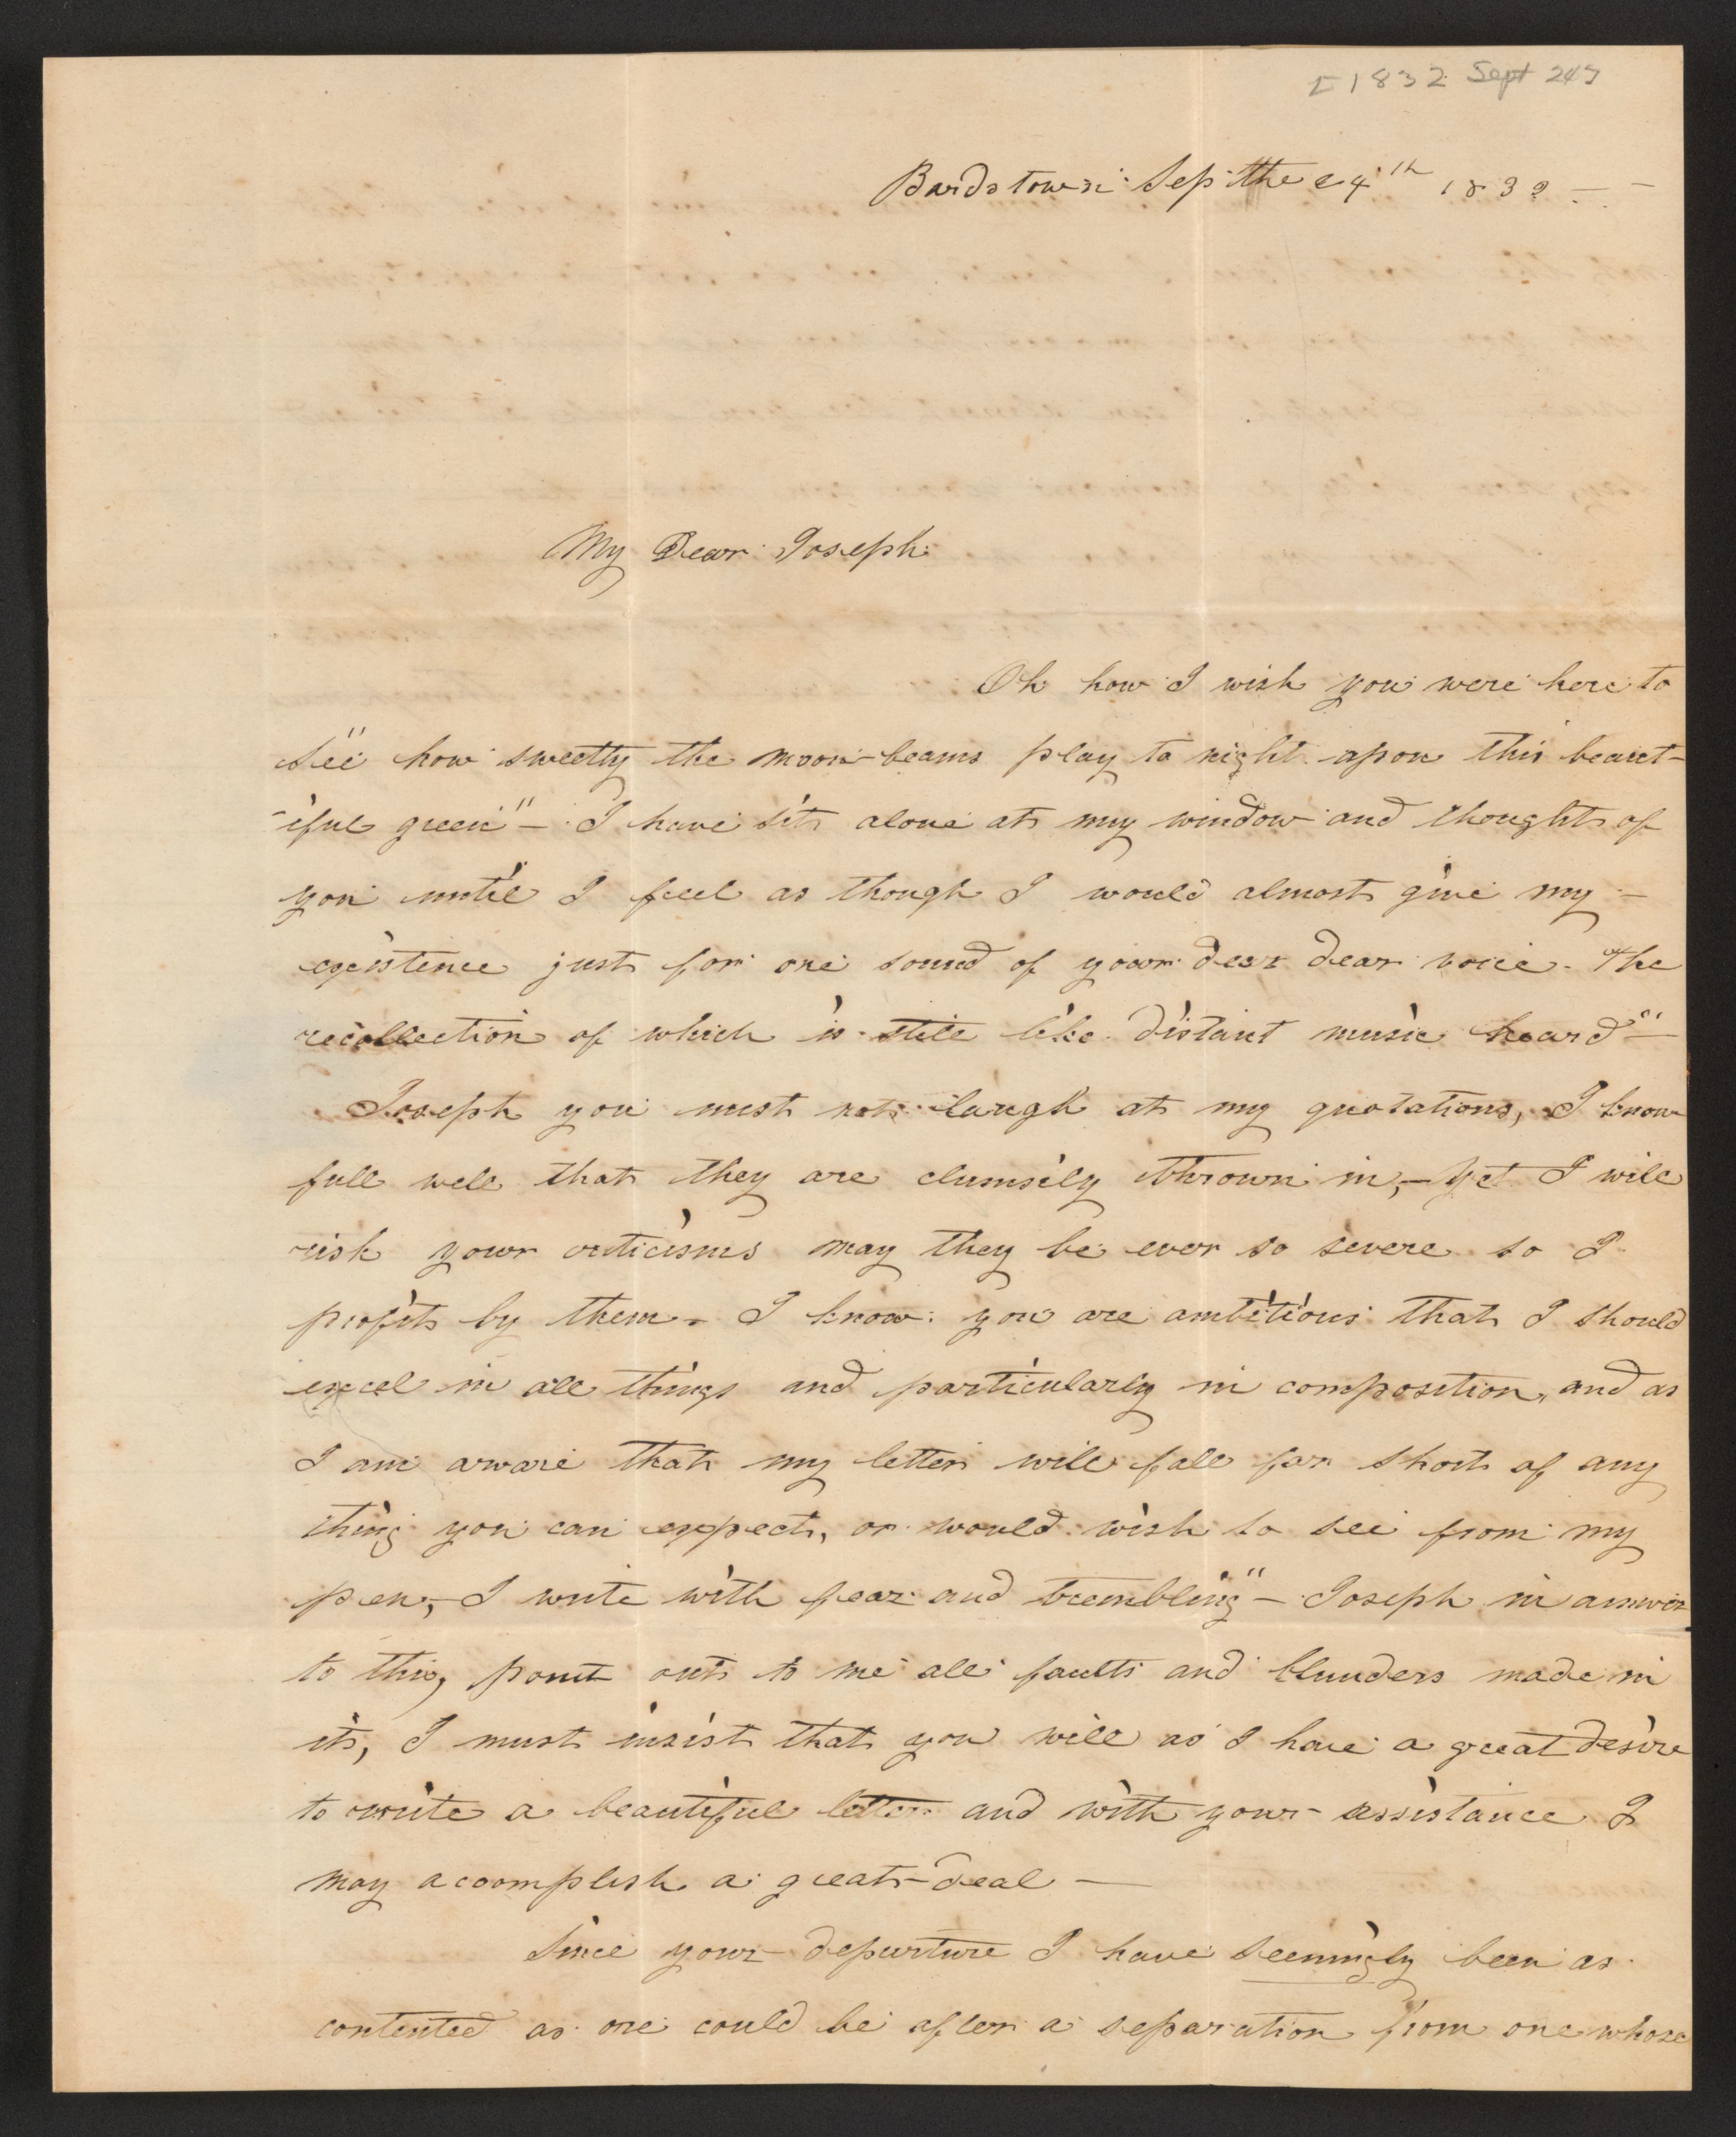 [1832 Sept 24]
Bardstown Sep. the 24th 1832 — -
My Dear Joseph
Oh how I wish you were here to
see how sweetly the moon-beams play to night upon this beaut-
-iful green" - I have sit alone at my window and thought of
you until I feel as though I would almost give my -
existence just for one sound of your dear dear voice. The
recollection of which is still like distant music heard" -
Joseph you must not laugh at my quotations, I know
full well that they are clumsily thrown in, - yet I will
risk your criticisms may they be ever so severe so I
profit by them. I know you are ambitious that I should
excel in all things and particularly in composition, and as
I am aware that my letter will fall far short of any
thing you can expect, or would wish to see from my
pen, - I write with fear and trembling" - Joseph in answer
to this, point out to me all faults and blunders made in
it, I must insist that you will as I have a great desire
to write a beautiful letter and with your assistance I
may acoomplish a great-deal —
Since your departure I have seemingly been as
contented as one could be after a separation from one whose